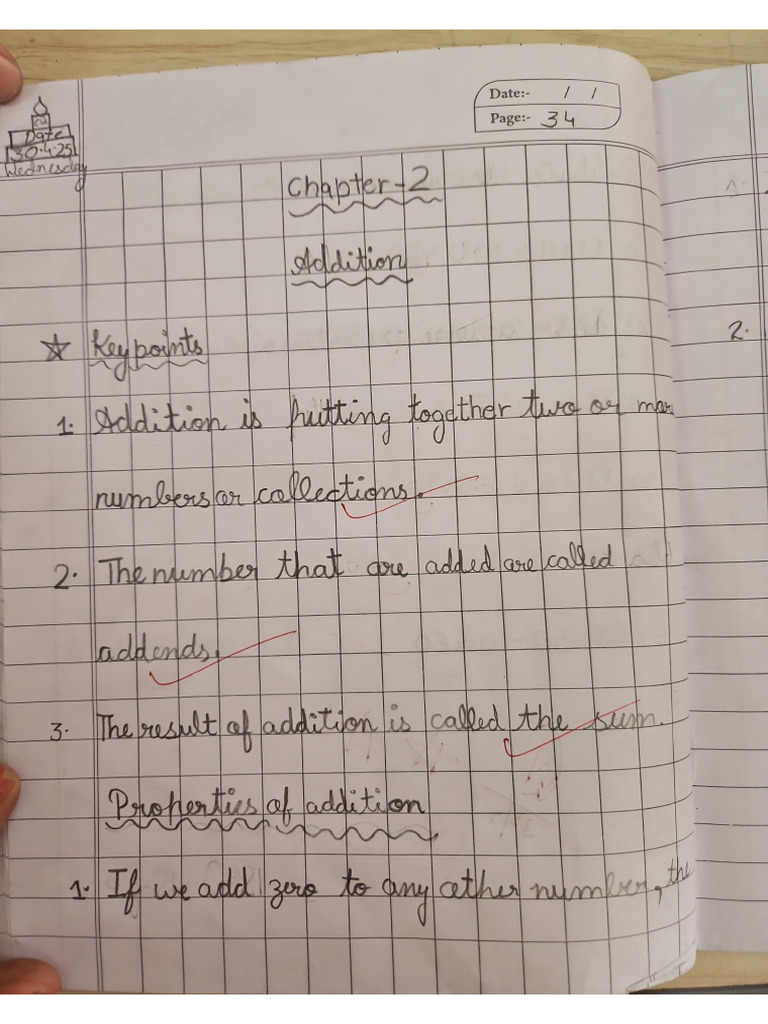 Date
30.4.25
Wednesday
Date:- / /
Page:- 34
Chapter-2
Addition
☆ Key points
1. Addition is putting together two or mor
numbers or collections.
2. The number that are added are called
addends.
3. The result of addition is called the sum.
Properties of addition
1. If we add zero to any other number, the
2.